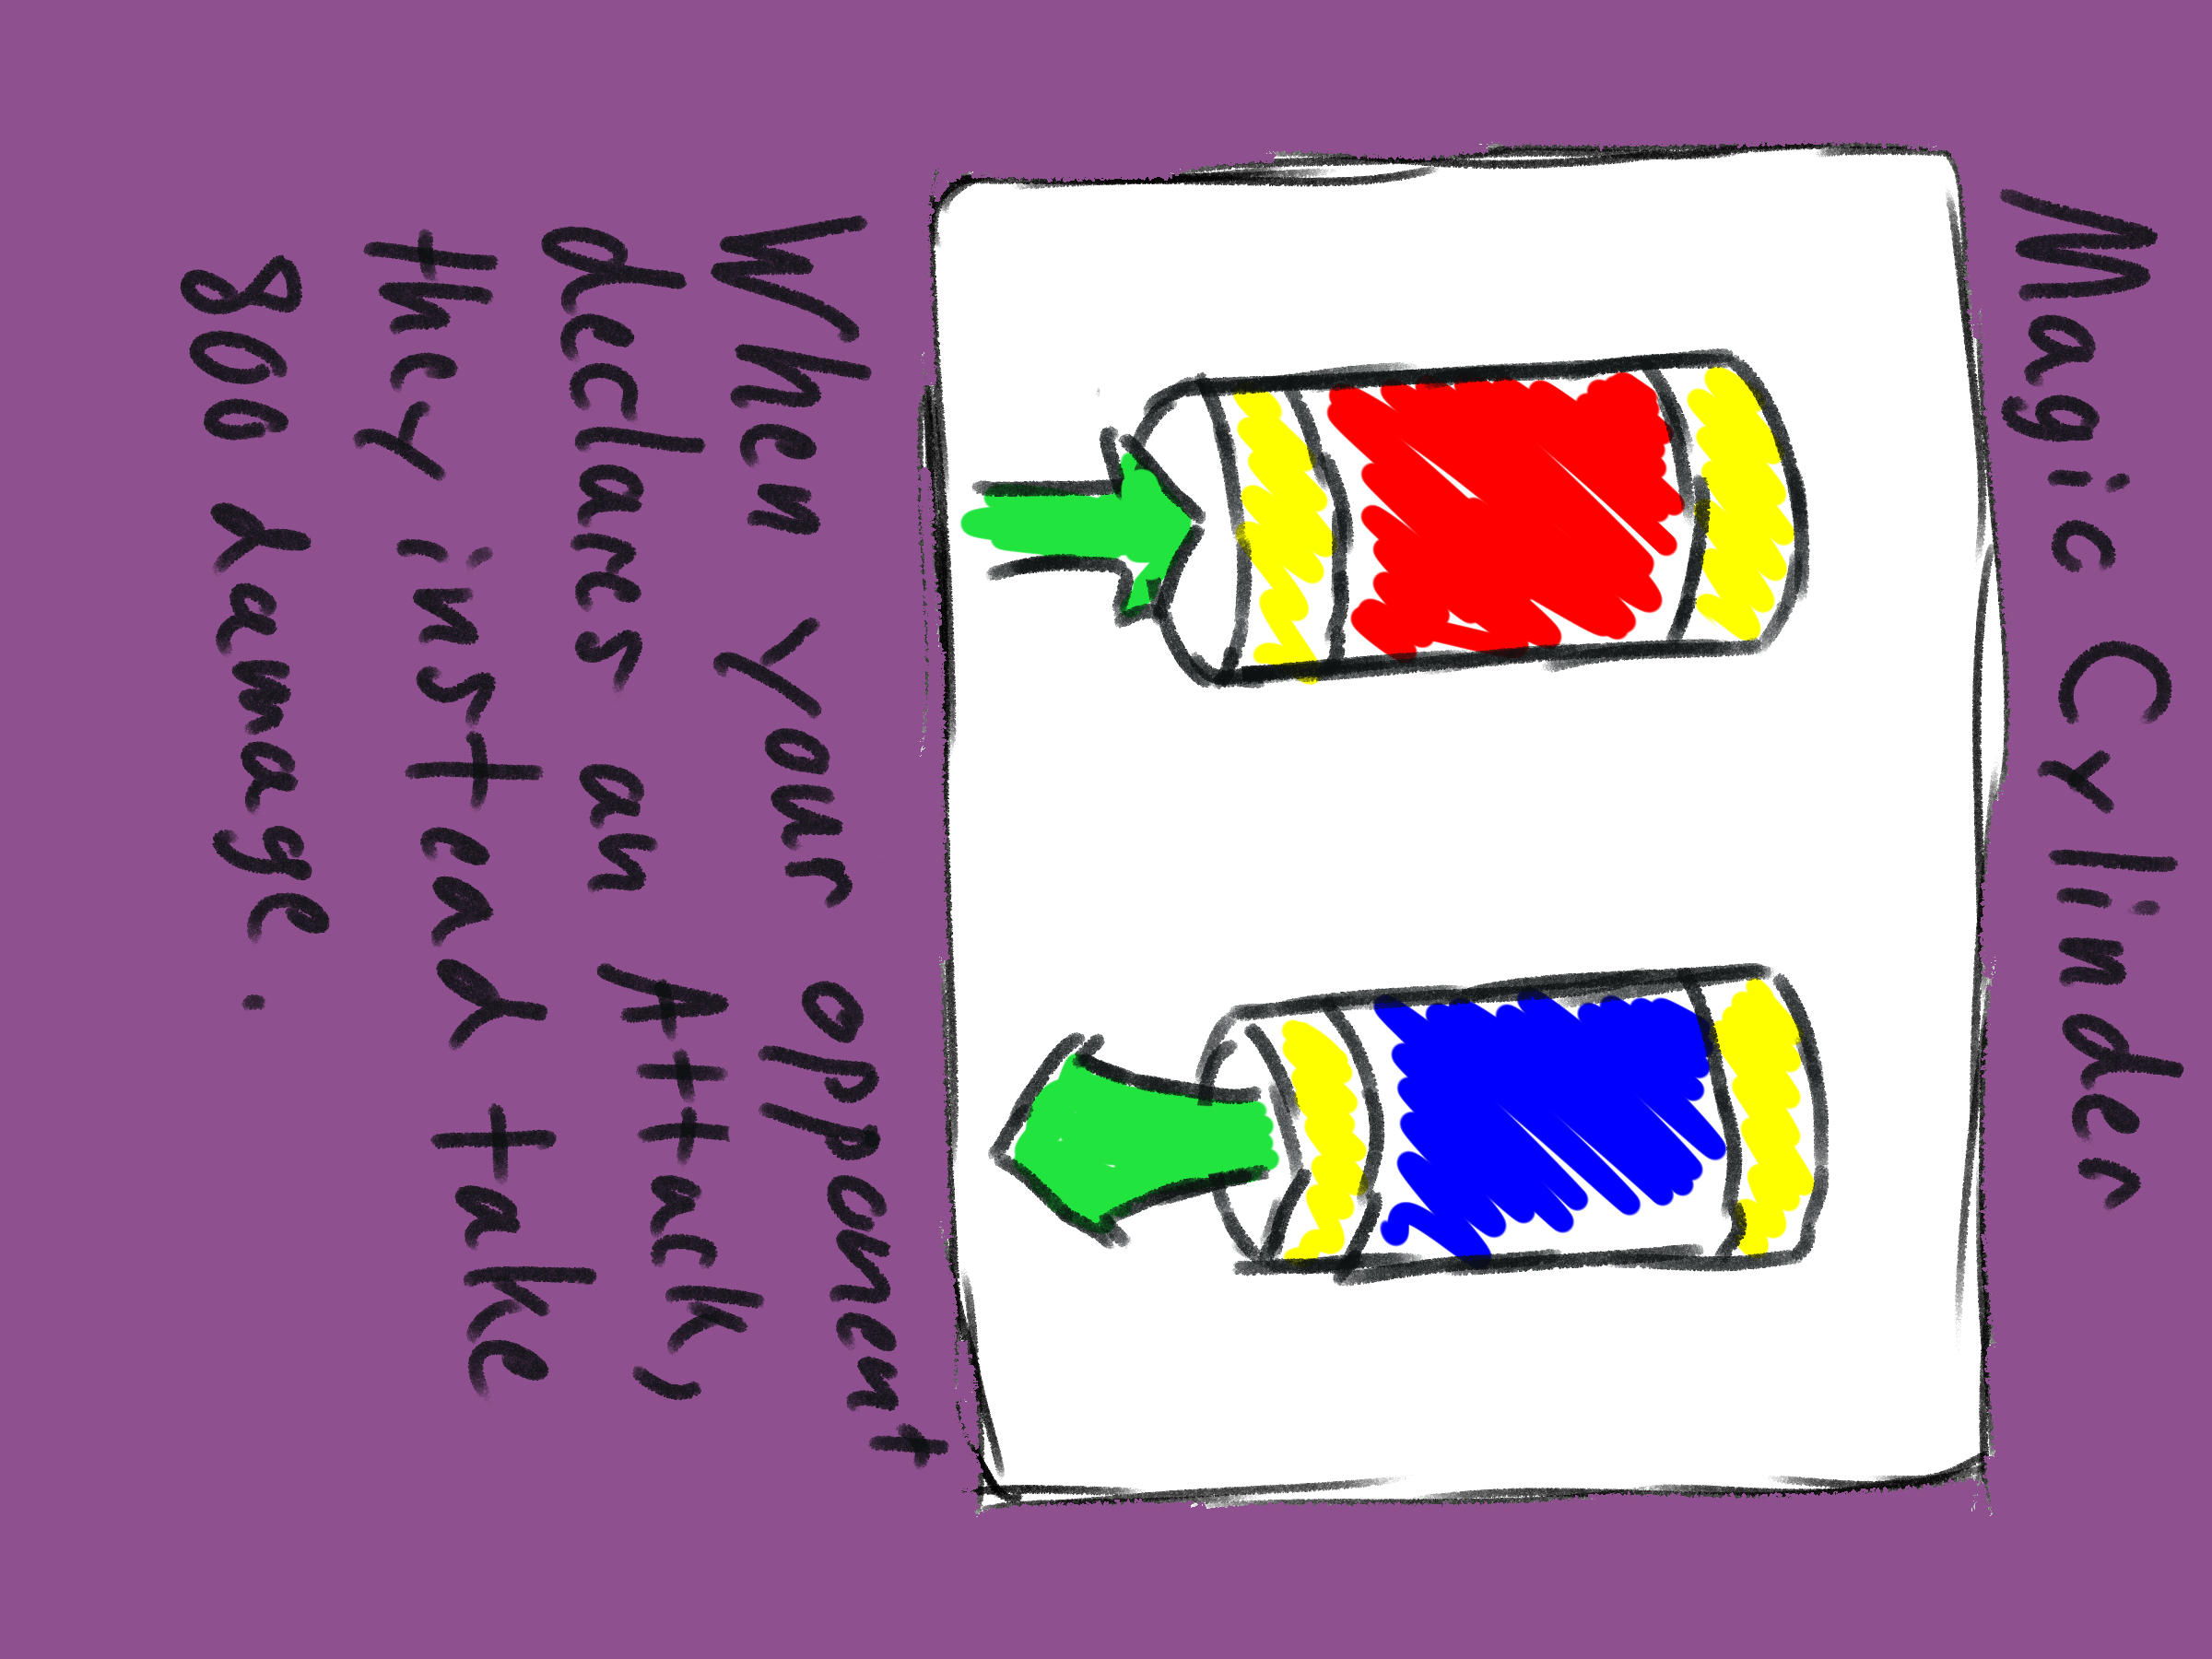 Magic Cylinder
When your opponent
declares an Attack,
they instead take
800 damage.